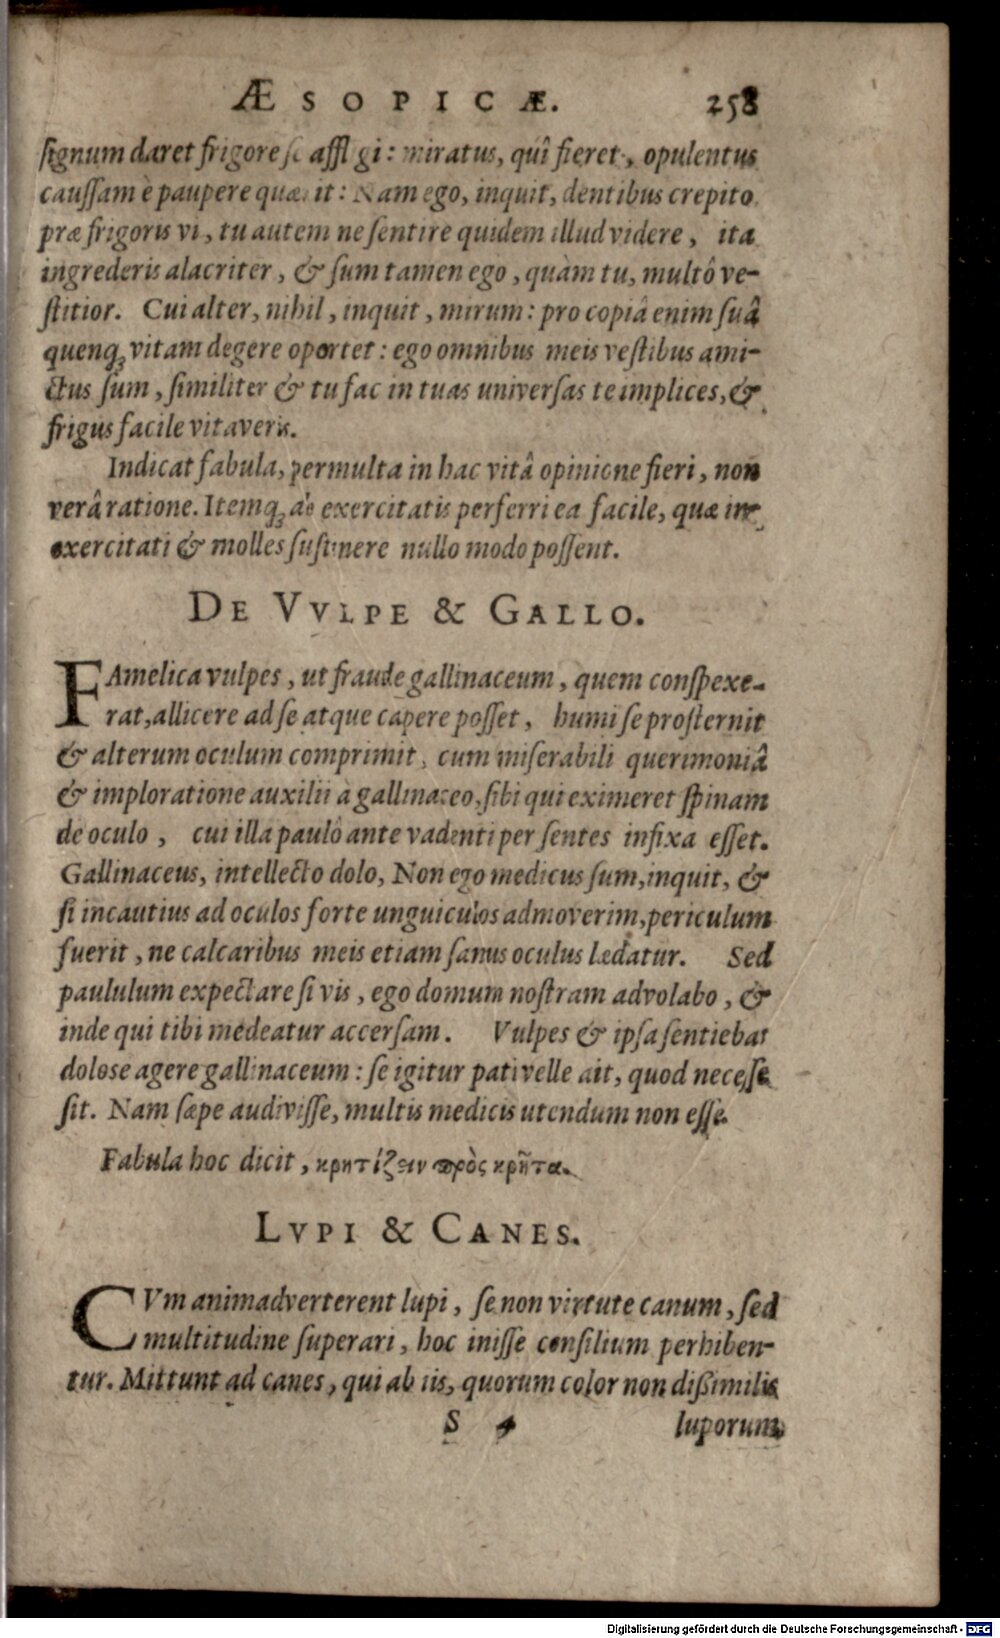 ÆSOPICÆ. 258
signum daret frigore se affligi: miratus, quî fieret, opulentus
caussam è paupere quærit: Nam ego, inquit, dentibus crepito
præ frigoris vi, tu autem ne sentire quidem illud videre, ita
ingrederis alacriter, & sum tamen ego, quàm tu, multô ve-
stitior. Cui alter, nihil, inquit, mirum: pro copiâ enim suâ
quenq; vitam degere oportet: ego omnibus meis vestibus ami-
ctus sum, similiter & tu fac in tuas universas te implices, &
frigus facile vitaveris.
Indicat fabula, permulta in hac vitâ opinione fieri, non
verâ ratione. Itemq; ab exercitatis perferri ea facile, quæ in-
exercitati & molles sustinere nullo modo possent.
DE VVLPE & GALLO.
FAmelica vulpes, ut fraude gallinaceum, quem conspexe-
rat, allicere ad se atque capere posset, humi se prosternit
& alterum oculum comprimit, cum miserabili querimoniâ
& imploratione auxilii à gallinaceo, sibi qui eximeret spinam
de oculo, cui illa paulò ante vadenti per sentes infixa esset.
Gallinaceus, intellecto dolo, Non ego medicus sum, inquit, &
si incautius ad oculos forte unguiculos admoverim, periculum
fuerit, ne calcaribus meis etiam sanus oculus lædatur. Sed
paululum expectare si vis, ego domum nostram advolabo, &
inde qui tibi medeatur accersam. Vulpes & ipsa sentiebat
dolose agere gallinaceum: se igitur pati velle ait, quod necesse
sit. Nam sæpe audivisse, multis medicis utendum non esse.
Fabula hoc dicit, κρητίζειν πρὸς κρῆτα.
LVPI & CANES.
CVm animadverterent lupi, se non virtute canum, sed
multitudine superari, hoc inisse consilium perhiben-
tur. Mittunt ad canes, qui ab iis, quorum color non dißimilis
S 4 luporum
Digitalisierung gefördert durch die Deutsche Forschungsgemeinschaft - DFG